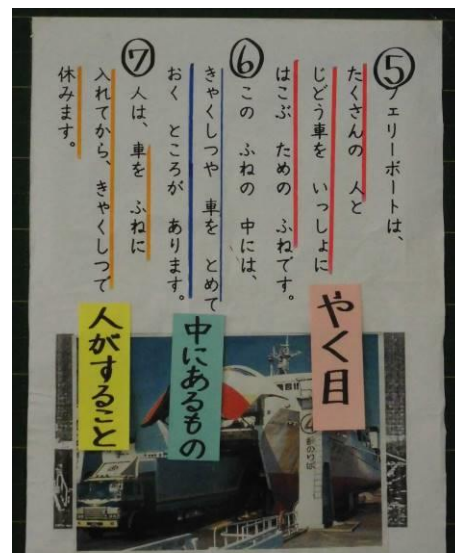 ⑤
フェリーボートは、
たくさんの 人と
じどう車を いっしょに
はこぶ ための ふねです。
⑥
この ふねの 中には、
きゃくしつや 車を とめて
おく ところが あります。
⑦
人は、車を ふねに
入れてから、きゃくしつで
休みます。
やく目
中にあるもの
人がすること
④